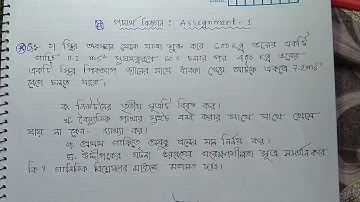 পদার্থ বিজ্ঞান : Assignment - 1
স্থির অবস্থান থেকে যাত্রা শুরু করে 600 kg ভরের একটি
গাড়ি 0.2 ms⁻² সুষমত্বরণে 60s চলার পর 400 kg ভরের
একটি স্থির পিকআপ ভ্যানের সাথে ধাক্কা খেয়ে আটকে একত্রে 7.2 ms⁻¹
বেগে চলতে থাকে।
ক. নিউটনের তৃতীয় সূত্রটি বিবৃত কর।
খ. বৈদ্যুতিক পাখার সুইচ বন্ধ করার সাথে সাথে থেমে
যায় না কেন- ব্যাখ্যা কর।
গ. প্রথম গাড়িতে প্রযুক্ত বলের মান নির্ণয় কর।
ঘ. উদ্দীপকের ঘটনা ভরবেগের সংরক্ষণশীলতা সূত্র সমর্থন করে
কি? গাণিতিক বিশ্লেষণের মাধ্যমে মতামত দাও।